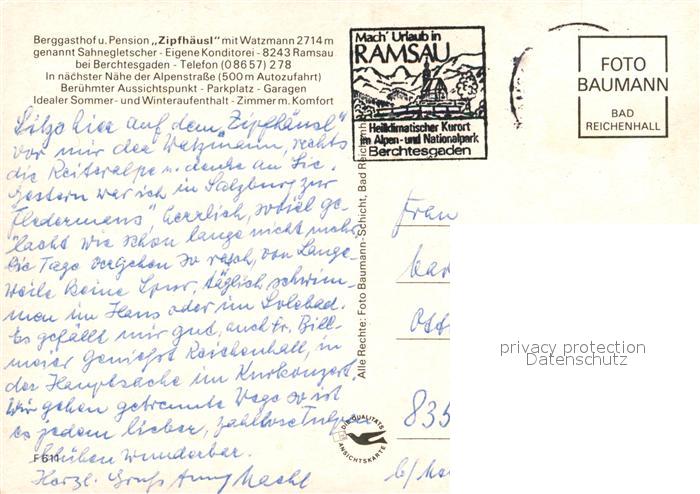 Berggasthof u. Pension „Zipfhäusl" mit Watzmann 2714 m
genannt Sahnegletscher - Eigene Konditorei - 8243 Ramsau
bei Berchtesgaden - Telefon (08657) 278
In nächster Nähe der Alpenstraße (500 m Autozufahrt)
Berühmter Aussichtspunkt - Parkplatz - Garagen
Idealer Sommer- und Winteraufenthalt - Zimmer m. Komfort
Mach' Urlaub in
RAMSAU
Heilklimatischer Kurort
im Alpen- und Nationalpark
Berchtesgaden
FOTO
BAUMANN
BAD
REICHENHALL
Sitze hier auf dem „Zipfhäusl"
vor mir der Watzmann, rechts
die Reiteralpe u. denke an Sie.
Gestern war ich in Salzburg zur
„Fledermaus", herrlich, soviel ge-
lacht wie schon lange nicht mehr.
Die Tage vergehen so rasch, von Lange-
weile keine Spur, täglich schwim-
men im Haus oder im Solebad.
Es gefällt mir gut, auch Fr. Bill-
meier genießt Reichenhall, in
der Hauptsache im Kurkonzert.
Wir gehen getrennte Wege so ist
es jedem lieber, zahllose Tulpen
blühen wunderbar.
Herzl. Gruß
Alle Rechte: Foto Baumann-Schicht, Bad Reichenhall
Frau
835
F 611
DIE QUALITÄTS
ANSICHTSKARTE
privacy protection
Datenschutz